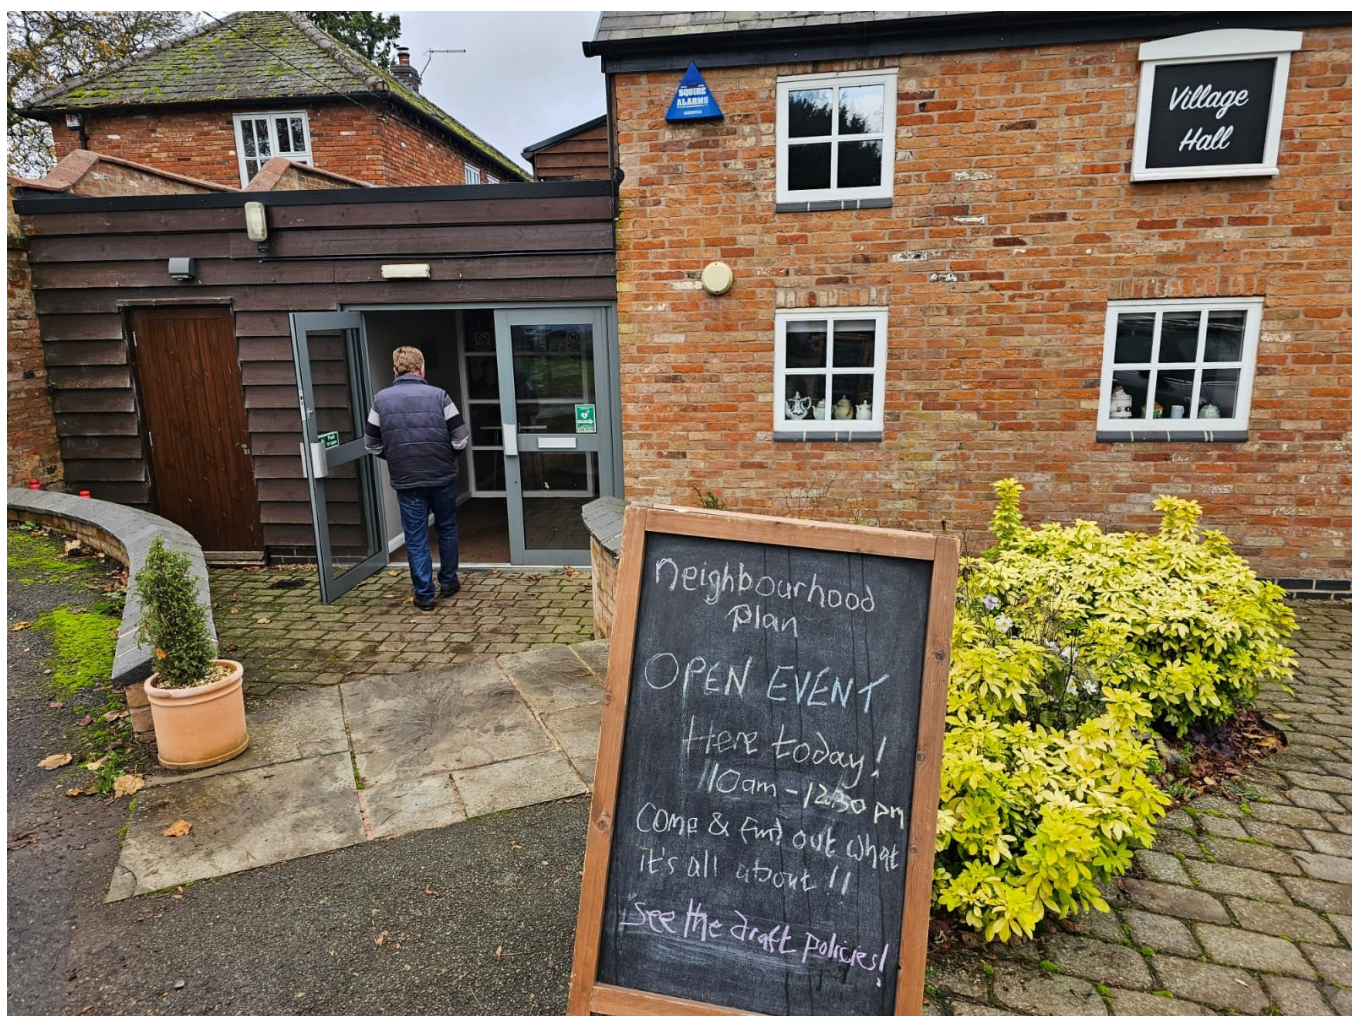 SQUIRE
ALARMS
Village
Hall
neighbourhood
plan
OPEN EVENT
Here today!
10am - 12.30 pm
come & find out what
it's all about !!
see the draft policies!